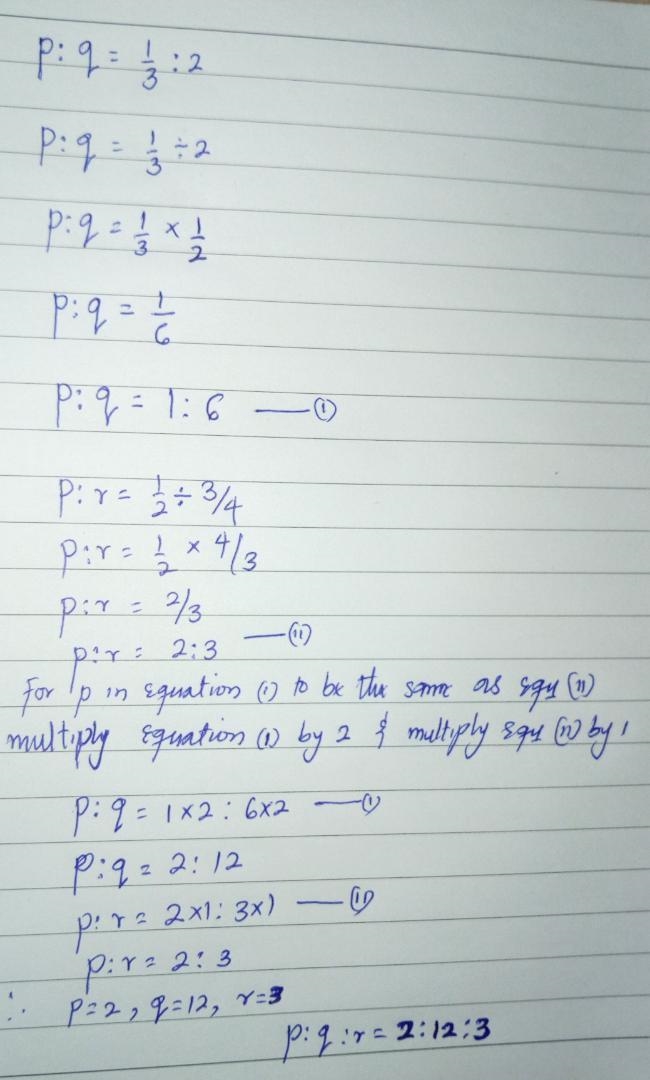 p:q = 1/3 : 2
p:q = 1/3 ÷ 2
p:q = 1/3 × 1/2
p:q = 1/6
p:q = 1:6 —(i)
p:r = 1/2 ÷ 3/4
p:r = 1/2 × 4/3
p:r = 2/3
p:r = 2:3 —(ii)
For p in equation (i) to be the same as equ (ii)
multiply equation (i) by 2 & multiply equ (ii) by 1
p:q = 1×2 : 6×2 —(i)
p:q = 2:12
p:r = 2×1 : 3×1 —(ii)
p:r = 2:3
∴ p=2, q=12, r=3
p:q:r = 2:12:3